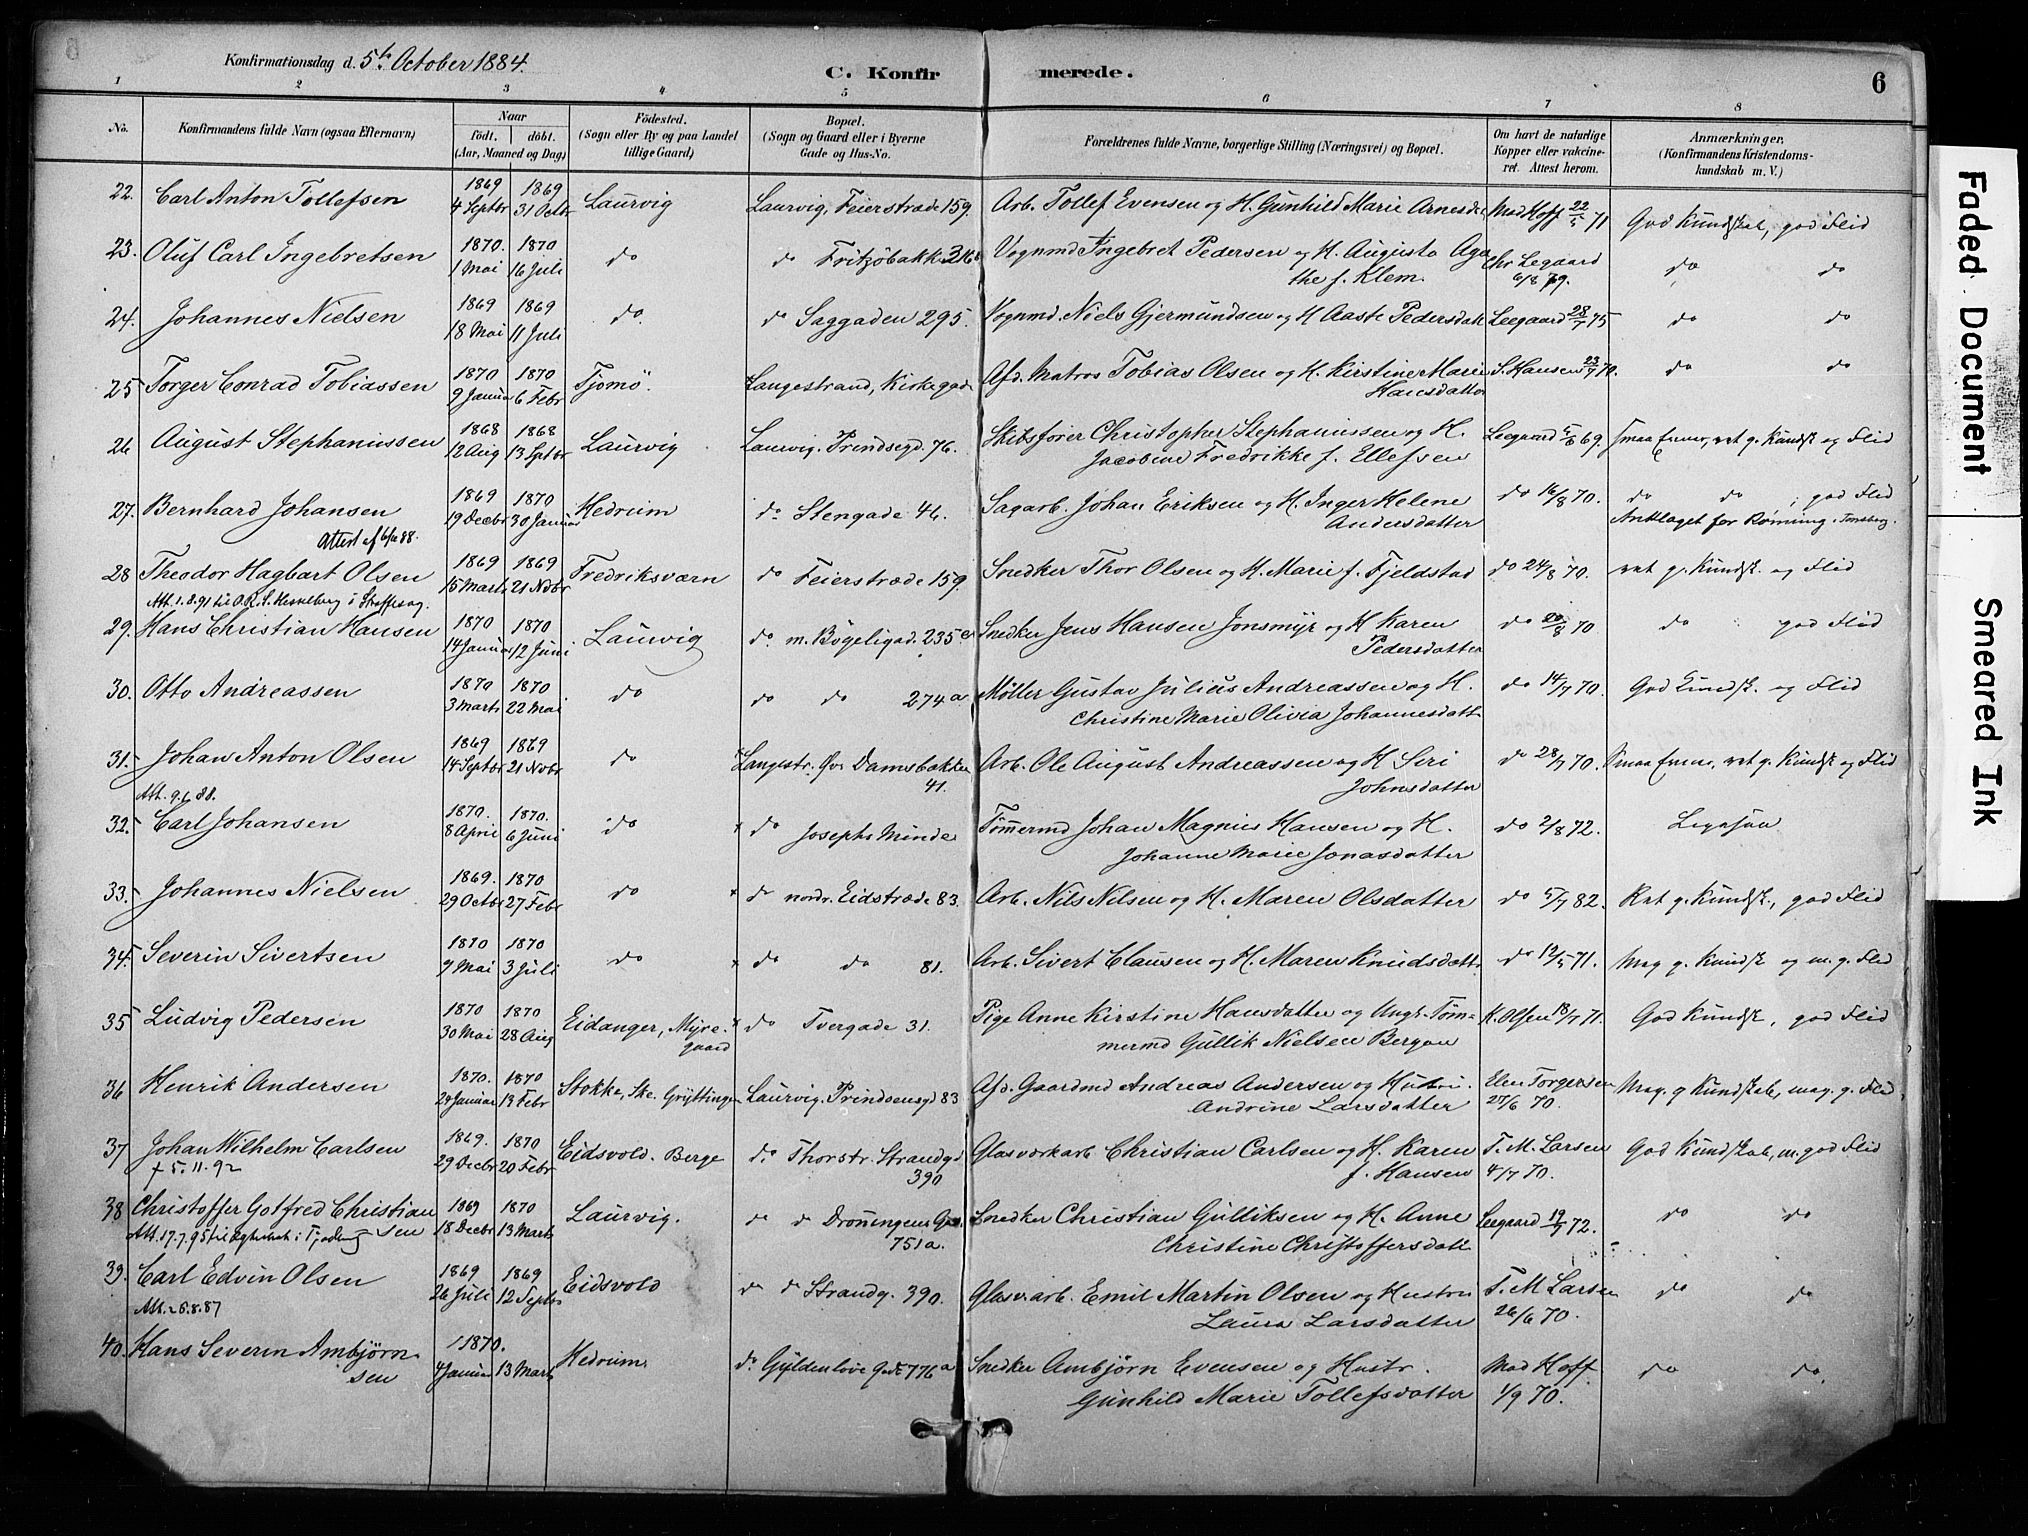 Konfirmationsdag d. 5te October 1884.
C. Konfirmerede.
6
1 2 3 4 5 6 7 8
No. Konfirmandens fulde Navn (ogsaa Efternavn) Naar født, døbt. (Aar, Maaned og Dag) Fødested. (Sogn eller By og paa Landet tillige Gaard) Bopæl. (Sogn og Gaard eller i Byerne Gade og Hus-No. Forældrenes fulde Navne, borgerlige Stilling (Næringsvei) og Bopæl. Om havt de naturlige Kopper eller vakcineret. Attest herom. Anmærkninger. (Konfirmandens Kristendomskundskab m. V.)
22. Carl Anton Tollefsen 1869 4 Septbr 1869 31 Octbr Laurvig Laurvig, Feierstræde 159. Arb. Tollef Evensen og H. Gunhild Marie Mad Hoff 71 God Kundskab, god Flid
23. Oluf Carl Ingebretsen 1870. 1 Mai 1870 16 Juli do do Fritzöbakke Vognmd Ingebret Pedersen og H. Augusta Aga
the f. Klem. Chr Legaard 6/8 79. do do
24. Johannes Nielsen 1869 18 Mai 1869 11 Juli do. do Saggaden 295. Vognmd. Niels Gjermundsen og H Aaste Pedersdatt Leegaard 28/7 75 do do
25 Torger Conrad Tobiassen 1870 9 Januar 1870 6 Febr Tjømö. Langestrand, Kirkegade Afd. Matros Tobias Olsen og H. Kirstine Marie
Hansdatter S. Hansen 23/7 70. do do
26 August Stephanussen 1868 12 Aug 1868 13 Sptbr Laurvig Laurvig. Prindsegd. 76. Skibsfører Christopher Stephanussen og H.
Jacobine Fredrikke f. Ellefsen Leegaard 69. Smaa Evner, ret g. Kundsk og Flid
27. Bernhard Johansen 1869 19 Decbr 1870 30 Januar Hedrum do Stengade 46. Sagarb. Johan Eriksen og H. Inger Helene
Andersdatter do 16/8 70. do do, god Flid
Attest af 6/12 88. Anklaget for Rømning. Tønsberg.
28 Theodor Hagbart Olsen 1869 15 Marts 1869 21 Nvbr Fredriksværn do Feierstræde 159. Snedker Thor Olsen og H. Marie f. Fjeldstad do 24/8 70. ret g. Kundsk. og Flid
Att. 1.8.91 til O.R.S. Hesselberg i Straffesag.
29. Hans Christian Hansen 1870 14 Januar 1870 12 Juni Laurvig do. m. Bögeligad. 235 Snedker Jens Hansen Jonsmyr og H Karen
Pedersdatter do 20/8 70 do god Flid
30. Otto Andreassen 1870 3 Marts 1870 22 Mai do do do 274a Møller Gustav Julius Andreassen og H.
Christine Marie Olivia Johannesdatt do 14/7 70. God Kundsk. og Flid
31. Johan Anton Olsen 1869 14 Septbr 1869 21 Nvbr do Langestr. Øvr Damsbakken
41. Arb. Ole August Andreassen og H Siri
Johnsdatter do 28/7 70. Smaa Evner, ret g. Kundsk og Flid
Att. 9.6.88.
32. Carl Johansen 1870. 8 April 1870. 6 Juni do do Josephs Minde Tømermd Johan Magnus Hansen og H.
Johanne Marie Jonasdatter do 2/8 72. Ligesaa
33. Johannes Nielsen 1869. 29 Octbr 1870 27 Febr do do nordr. Eidstræde 83. Arb. Nils Nilsen og H. Maren Olsdatter do 5/7 82. Ret g. Kundsk., god Flid
34. Severin Sivertsen 1870 9 Mai 1870 3 Juli do do do 81. Arb. Sivert Clausen og H. Maren Knudsdattr do 71. Meg g. Kundsk og m. g. Flid
35 Ludvig Pedersen 1870 30 Mai 1870 28 Aug Eidanger, Myre-
gaard do Tvergade 31. Pige Anne Kirstine Hansdatter og Ungk. Tøm-
mermd Gullik Nielsen Bergan K. Olsen 18/7 71. God Kundsk, god Flid
36 Henrik Andersen 1870. 24 Januar 1870 13 Febr Stokke, Ske. Grÿttingen Laurvig. Prindsensgd 83 Afd. Gaardmd Andreas Andersen og Hustru.
Andrine Larsdatter Elen Torgersen 27/6 70. Meg. g Kundskab, meg. g. Flid
37 Johan Wilhelm Carlsen 1869. 29 Decbr 1870 20 Febr Eidsvold. Berge do. Thorstr. Strandgd
390 Glasværkarb Christian Carlsen og H. Karen
f. Hansen T. M. Larsen 4/7 70. God Kundskab, m. god Flid
† 5.11.92
38 Christoffer Gotfred Christian
sen 1869 18 Decbr 1870 13 Marts Laurvig. do do Droningens G.
751a. Snedker Christian Gulliksen og H. Anne
Christine Christoffersdatt Leegaard 19/7 72. do do
Att. 17.7.95 til
39. Carl Edvin Olsen 1869 26 Juli 1869 12 Septbr Eidsvold do do Strandg. 390. Glasv.arb. Emil Martin Olsen og Hustru
Laura Larsdatter T. M Larsen 26/6 70. do do
40. Hans Severin Ambjörn
sen 1870. 4 Januar 13 Marts Hedrum do Gyldenløve Gade 776a Snedker Ambjörn Evensen og Hustr.
Gunhild Marie Tollefsdatter Mad Hoff. 1/9 70. do do.
Faded Document
Smeared Ink